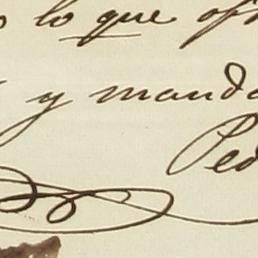 lo que
y manda
Ped